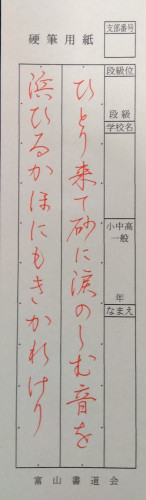 硬筆用紙
支部番号
段級位
段
級
学校名
小中高
一般
年
なまえ
ひとり来て砂に涙のしむ音を
浜ひるかほにもきかれけり
富山書道会